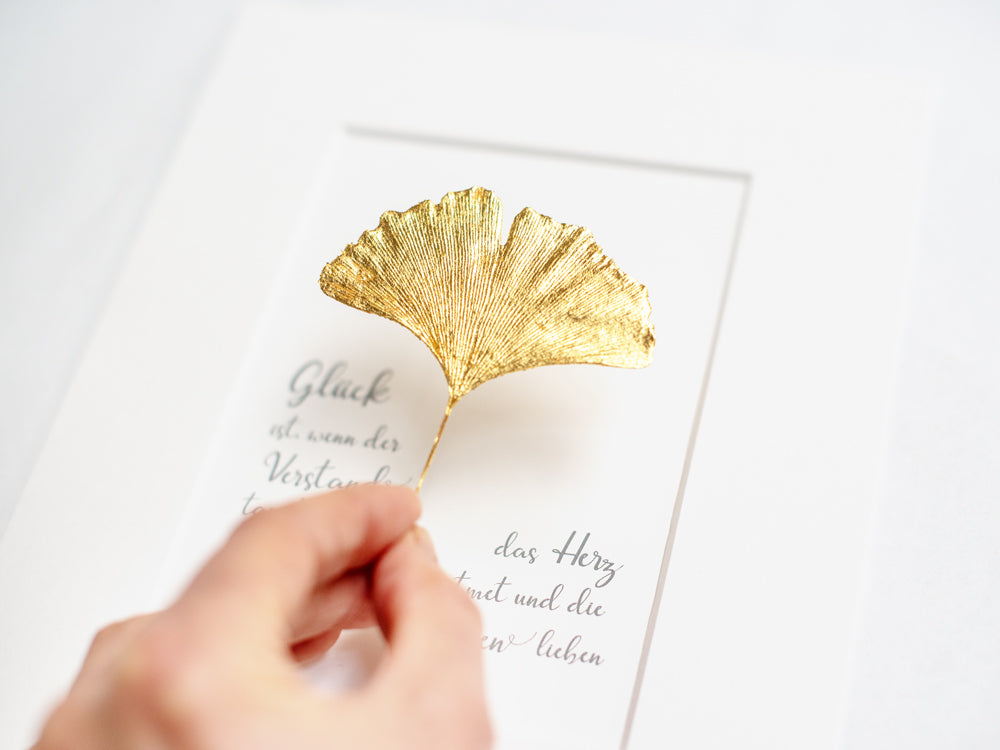 Glück
ist, wenn der
Verstand
das Herz
und die
lieben